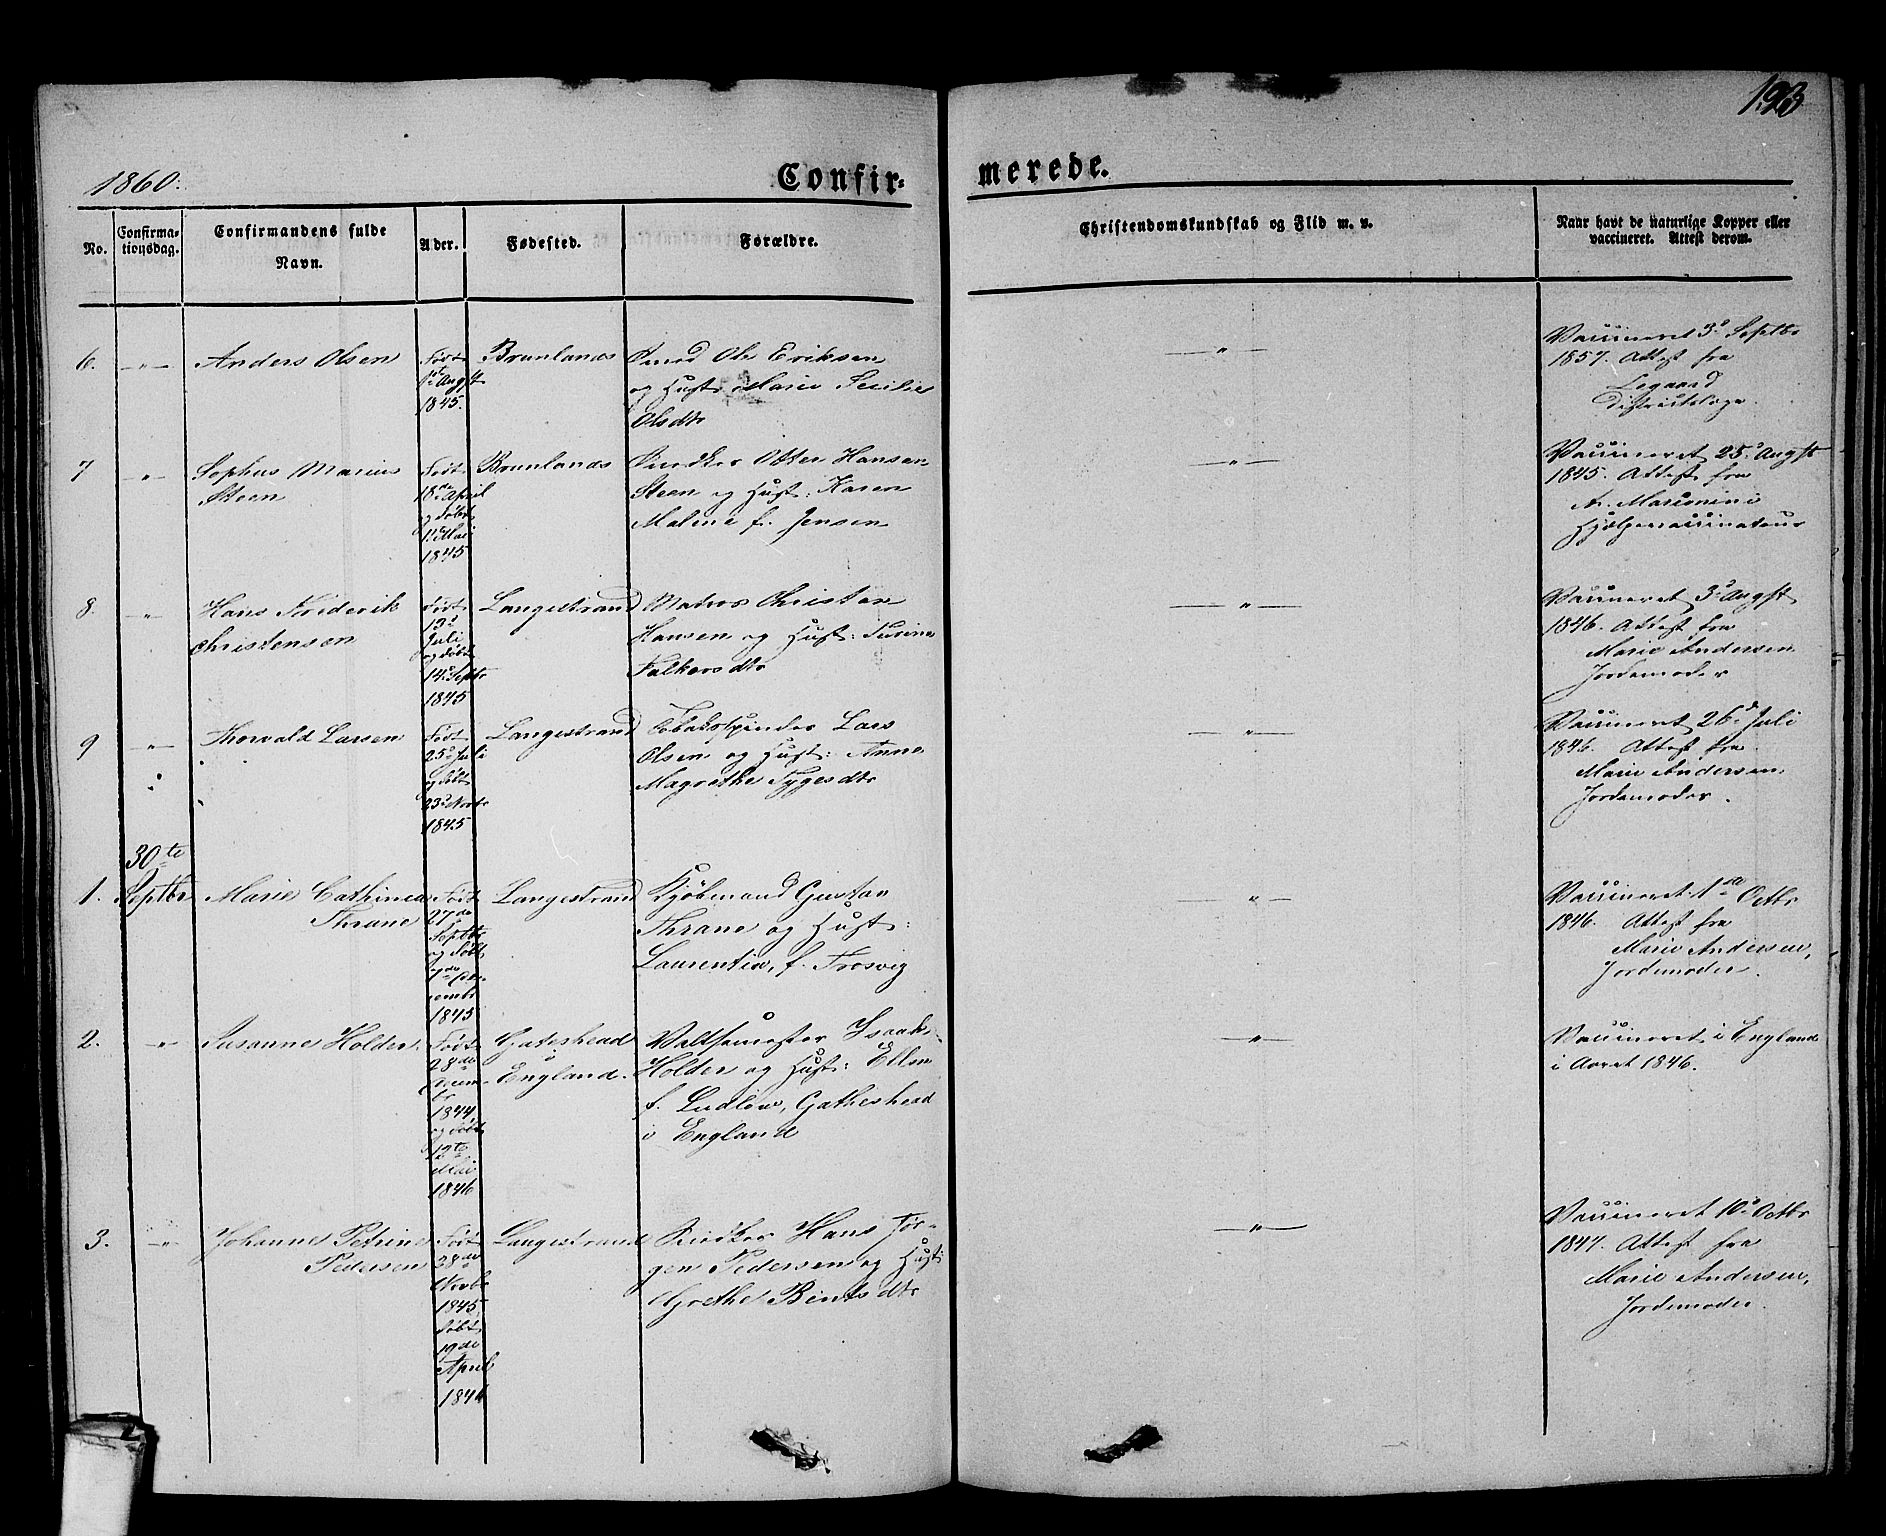 193
1860.
Confir-
merede.
No.
Confirma-
tionsdag.
Confirmandens fulde
Navn.
Alder.
Fødested.
Forældre.
Christendomskundskab og Flid m. v.
Naar havt de naturlige Kopper eller
vaccineret. Attest derom.
6. -"- Anders Olsen
Født
1ste Augst
1845.
Brunlanæs
Ole Eriksen
og Hust: Marie Secilie
Olsdtr
-"-
Vaccineret 3d Septbr
1857. Attest fra
Legaard
Districtslæge.
7 -"- Sophus Marius
Steen
Født
18de April
og døbt
11te Mai
1845
Brunlanæs
Otter Hansen
Steen og Hust: Karen
Maline f. Jensen
-"-
Vaccineret 25d Augst
1845. Attest fra
A. Marconini
Hjælpevaccinateur
8. " Hans Frederik
Christensen
Født
19d
Juli
og døbt
14d Septbr
1845
Langestrand
Matros Christen
Hansen og Hust: Turine
Falkersdtr
-"-
Vaccineret 3d Augst
1846. Attest fra
Marie Andersen
Jordemoder
9 -"- Thorvald Larsen
Født
25d Juli
og døbt
23d Novbr
1845
Langestrand
Tobakspinder Lars
Olsen og Hust: Anne
Magrethe Tygesdtr
-"-
Vaccineret 26d Juli
1846. Attest fra
Marie Andersen,
Jordemoder.
30te
1. Septbr Marie Cathinca
Thrane
Født
27de
Septbr
og døbt
7de De-
cembr
1845
Langestrand
Kjøbmand Gustav
Thrane og Hust:
Laurentia, f. Trosvig
-"-
Vaccineret 1ste Octbr
1846. Attest fra
Marie Andersen,
Jordemoder.
2. -"- Susanne Holder.
Født
28de
1844,
og døbt
12te
Mai
1846
Gateshead
i
England.
Valtsemester Isaak
Holder og Hust: Ellen
f. Ludlow, Gatheshead
i England
-"-
Vaccineret i England
i Aaret 1846.
3. -"- Johanne Petrine
Pedersen
Født
28de
Novbr
1845,
døbt
19de
April
1846
Langestrand
Hans Jør-
gen Pedersen og Hust:
Grethe Bentsdtr
-"-
Vaccineret 10d Octbr
1847. Attest fra
Marie Andersen,
Jordemoder.